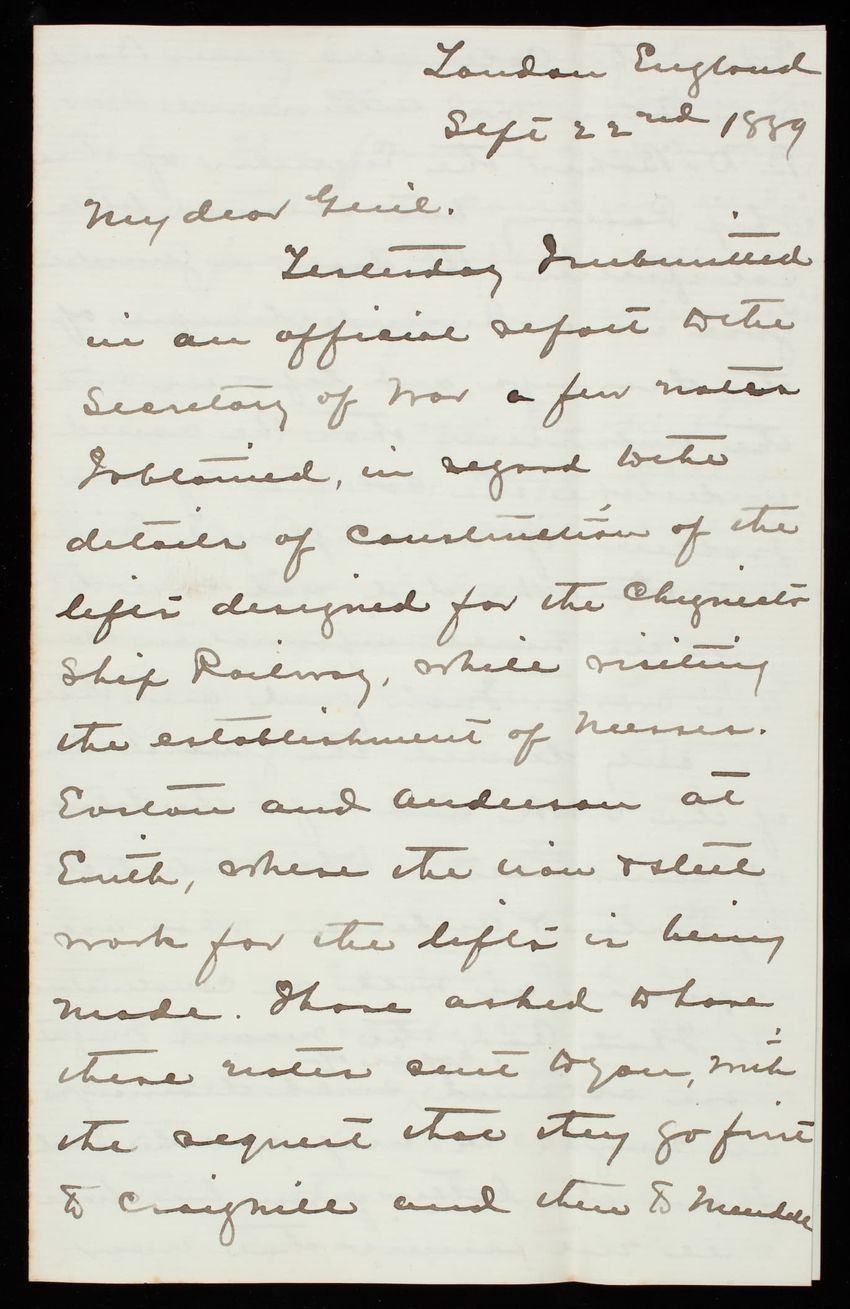 London England
Sept 22nd 1889
My dear Genl.
Yesterday I submitted
in an official report to the
Secretary of War a few notes
I obtained, in regard to the
details of construction of the
lifts designed for the Chignecto
Ship Railway, while visiting
the establishment of Messrs.
Easton and Anderson at
Erith, where the iron & steel
work for the lifts is being
made. I have asked to have
these notes sent to you, with
the request that they go first
to Craighill and then to Mendell